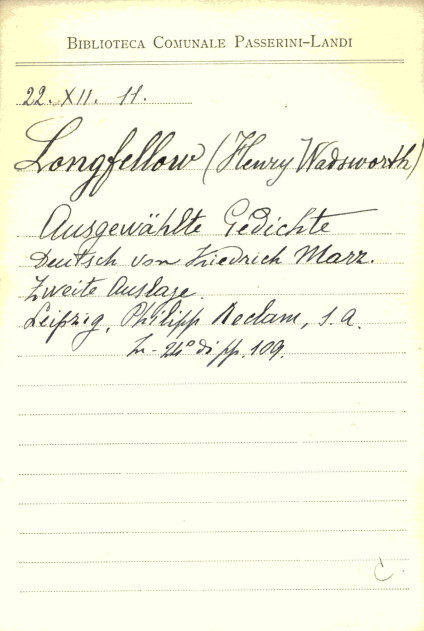 BIBLIOTECA COMUNALE PASSERINI-LANDI
22. XII. 11.
Longfellow (Henry Wadsworth)
Ausgewählte Gedichte
Deutsch von Friedrich Marx.
Zweite Auflage.
Leipzig, Philipp Reclam, s. a.
In-24° di pp. 109.
C